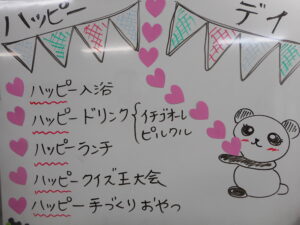 ハッピー デイ
ハッピー入浴
ハッピードリンク{イチゴオーレ
ピルクル
ハッピーランチ
ハッピークイズ王大会
ハッピー手づくりおやつ